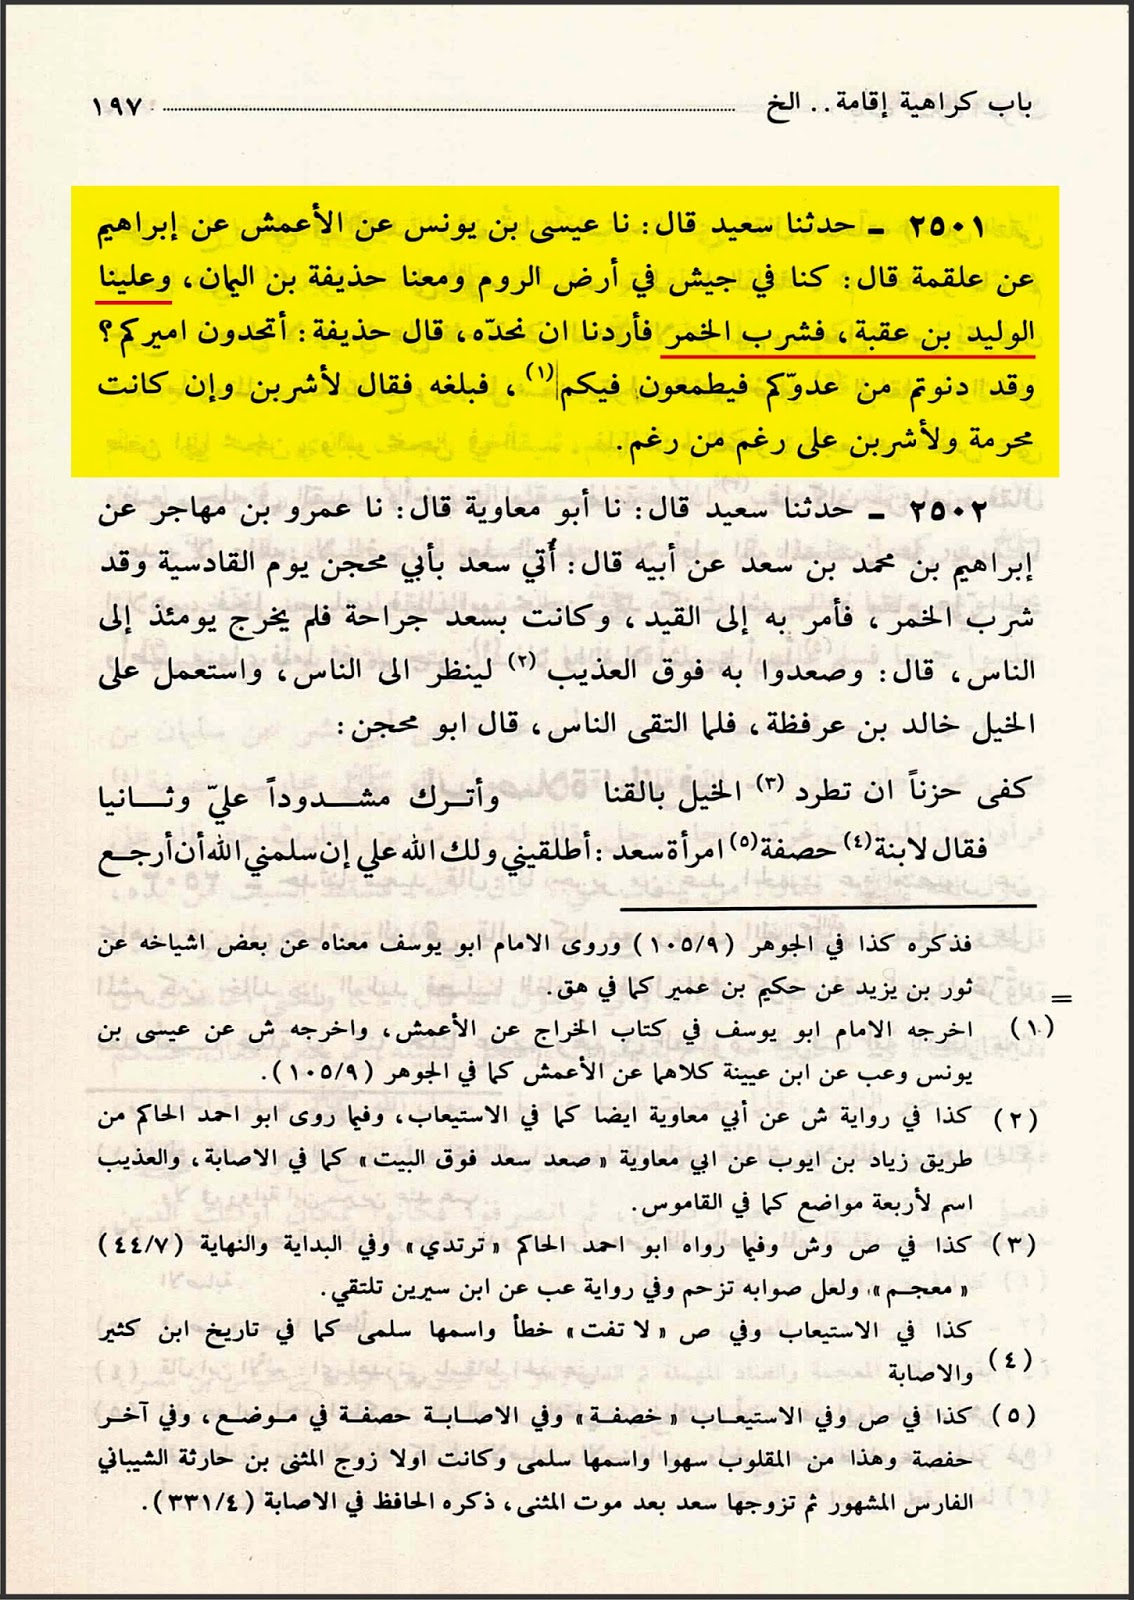 باب كراهية إقامة.. الخ ١٩٧
٢٥٠١ ـ حدثنا سعيد قال: نا عيسى بن يونس عن الأعمش عن إبراهيم
عن علقمة قال: كنا في جيش في أرض الروم ومعنا حذيفة بن اليمان، وعلينا
الوليد بن عقبة، فشرب الخمر فأردنا ان نحدّه، قال حذيفة: أتحدون اميركم؟
وقد دنوتم من عدوّكم فيطمعون فيكم(١)، فبلغه فقال لأشربن وإن كانت
محرمة ولأشربن على رغم من رغم.
٢٥٠٢ ـ حدثنا سعيد قال: نا أبو معاوية قال: نا عمرو بن مهاجر عن
إبراهيم بن محمد بن سعد عن أبيه قال: أُتي سعد بأبي محجن يوم القادسية وقد
شرب الخمر، فأمر به إلى القيد، وكانت بسعد جراحة فلم يخرج يومئذ إلى
الناس، قال: وصعدوا به فوق العذيب(٢) لينظر الى الناس، واستعمل على
الخيل خالد بن عرفظة، فلما التقى الناس، قال ابو محجن:
كفى حزناً ان تطرد(٣) الخيل بالقنا وأتـرك مشـدوداً عليّ وثـانيا
فقال لابنة(٤) حصفة(٥) امرأة سعد: أطلقيني ولك الله علي إن سلمني الله أن أرجـع
فذكره كذا في الجوهر (١٠٥/٩) وروى الامام ابو يوسف معناه عن بعض اشياخه عن
ثور بن يزيد عن حكيم بن عمير كما في هق. =
(١) اخرجه الامام ابو يوسف في كتاب الخراج عن الأعمش، واخرجه ش عن عيسى بن
يونس وعب عن ابن عيينة كلاهما عن الأعمش كما في الجوهر (١٠٥/٩).
(٢) كذا في رواية ش عن أبي معاوية ايضا كما في الاستيعاب، وفيما روى ابو احمد الحاكم من
طريق زياد بن ايوب عن ابي معاوية «صعد سعد فوق البيت» كما في الاصابة، والعذيب
اسم لأربعة مواضع كما في القاموس.
(٣) كذا في ص وش وفيما رواه ابو احمد الحاكم «ترتدي» وفي البداية والنهاية (٤٤/٧)
«معجـم»، ولعل صوابه تزحم وفي رواية عب عن ابن سيرين تلتقي.
(٤) كذا في الاستيعاب وفي ص «لا تفت» خطأ واسمها سلمى كما في تاريخ ابن كثير
والاصابة
(٥) كذا في ص وفي الاستيعـاب «خصفـة» وفي الاصابـة حصفـة في مـوضع، وفي آخـر
حفصة وهذا من المقلوب سهوا واسمها سلمى وكانت اولا زوج المثنى بن حارثة الشيباني
الفارس المشهور ثم تزوجها سعد بعد موت المثنى، ذكره الحافظ في الاصابة (٣٣١/٤).